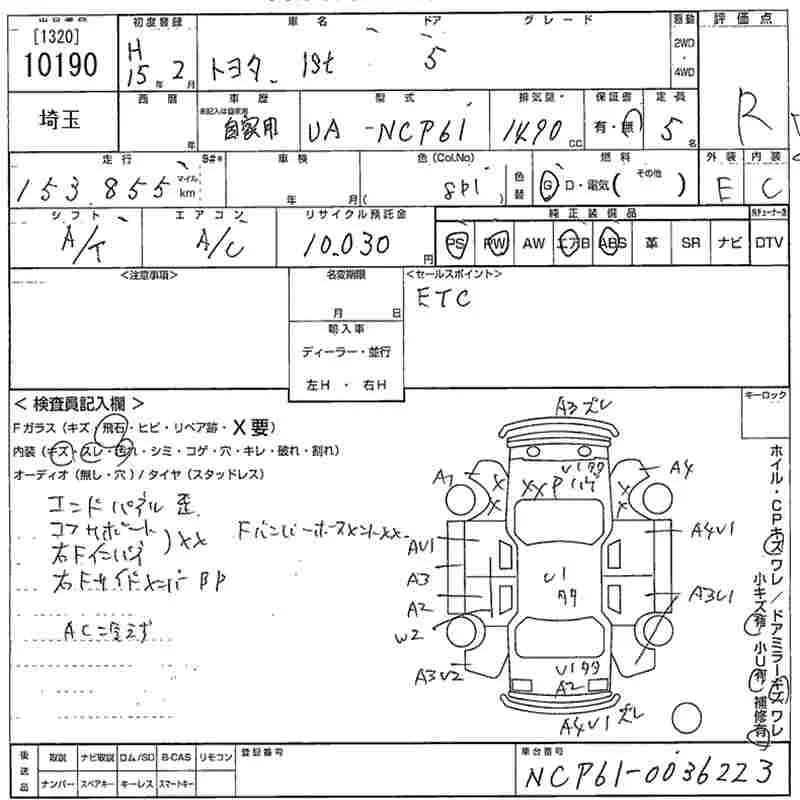 [1320]
10190
初度登録
H 15年 2月
車名 ドア グレード
トヨタ ist 5
駆動
2WD
・
4WD
評価点
R
埼玉
西暦
年
車歴
未記入は自家用
自家用
型式
UA -NCP61
排気量
1490
CC
保証書
有・無
定員
5
名
走行
153,855
マイル
km
車検
年 月
色(Col.No)
( 8P1 )
色替
燃料
G D・電気( その他 )
外装
E
内装
C
シフト
A/T
エアコン
A/C
リサイクル預託金
10,030
円
純正装備品
PS PW AW エアB ABS 革 SR ナビ DTV
<注意事項>
名変期限
月 日
輸入車
ディーラー・並行
左H ・ 右H
<セールスポイント>
ETC
キーロック
<検査員記入欄>
Fガラス(キズ・飛石・ヒビ・リペア跡・X要)
内装(キズ・スレ・汚れ・シミ・コゲ・穴・キレ・破れ・割れ)
オーディオ(無し・穴)/タイヤ(スタッドレス)
エンドパネル 歪
コアサポート
右Fインパネ
XX
右Fサイドメンバ BP
AC冷えず
A3ズレ
U1タタ
XXPハゲ
A4
AU1
A4U1
A3
A2
W2
U1
タタ
A3U1
A3U2
U1タタ
A2
A4U1ズレ
ホイル・CPキズワレ/ドアミラーキズワレ
小キズ有 小U有 補修有
後送品
取説 ナビ取説 ロム/SD B-CAS リモコン
ナンバー スペアキー キーレス スマートキー
登録番号
車台番号
NCP61-0036223